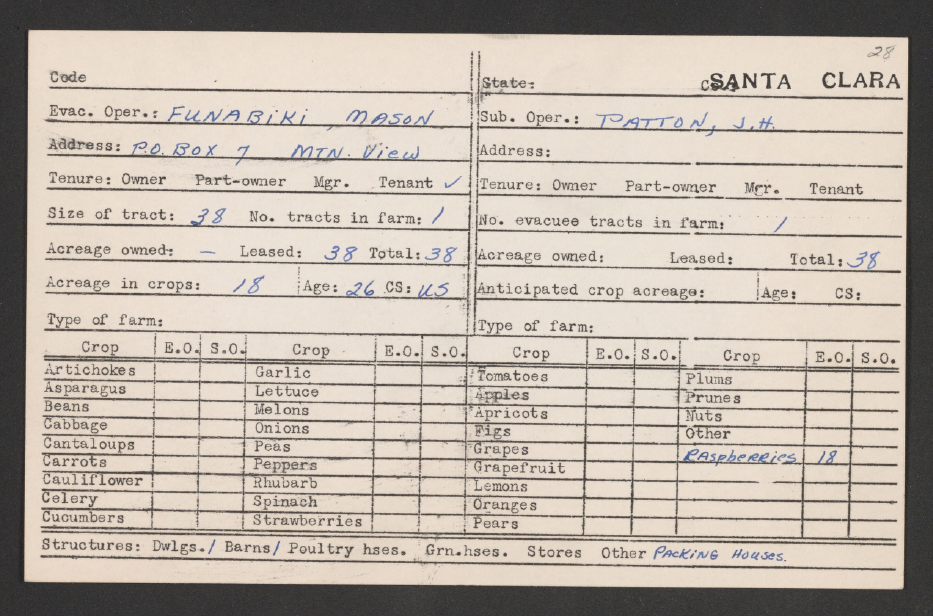 28
Code
State: Co. SANTA CLARA
Evac. Oper.: FUNABIKI, MASON
Sub. Oper.: PATTON, J.H.
Address: P.O. BOX 7 MTN. View
Address:
Tenure: Owner Part-owner Mgr. Tenant ✓
Tenure: Owner Part-owner Mgr. Tenant
Size of tract: 38 No. tracts in farm: 1
No. evacuee tracts in farm: 1
Acreage owned: — Leased: 38 Total: 38
Acreage owned: Leased: Total: 38
Acreage in crops: 18 Age: 26 CS: US
Anticipated crop acreage: Age: CS:
Type of farm:
Type of farm:
Crop E.O. S.O. Crop E.O. S.O. Crop E.O. S.O. Crop E.O. S.O.
Artichokes Garlic Tomatoes Plums
Asparagus Lettuce Apples Prunes
Beans Melons Apricots Nuts
Cabbage Onions Figs Other
Cantaloups Peas Grapes RASPBERRIES 18
Carrots Peppers Grapefruit
Cauliflower Rhubarb Lemons
Celery Spinach Oranges
Cucumbers Strawberries Pears
Structures: Dwlgs. / Barns / Poultry hses. Grn.hses. Stores Other PACKING HOUSES.